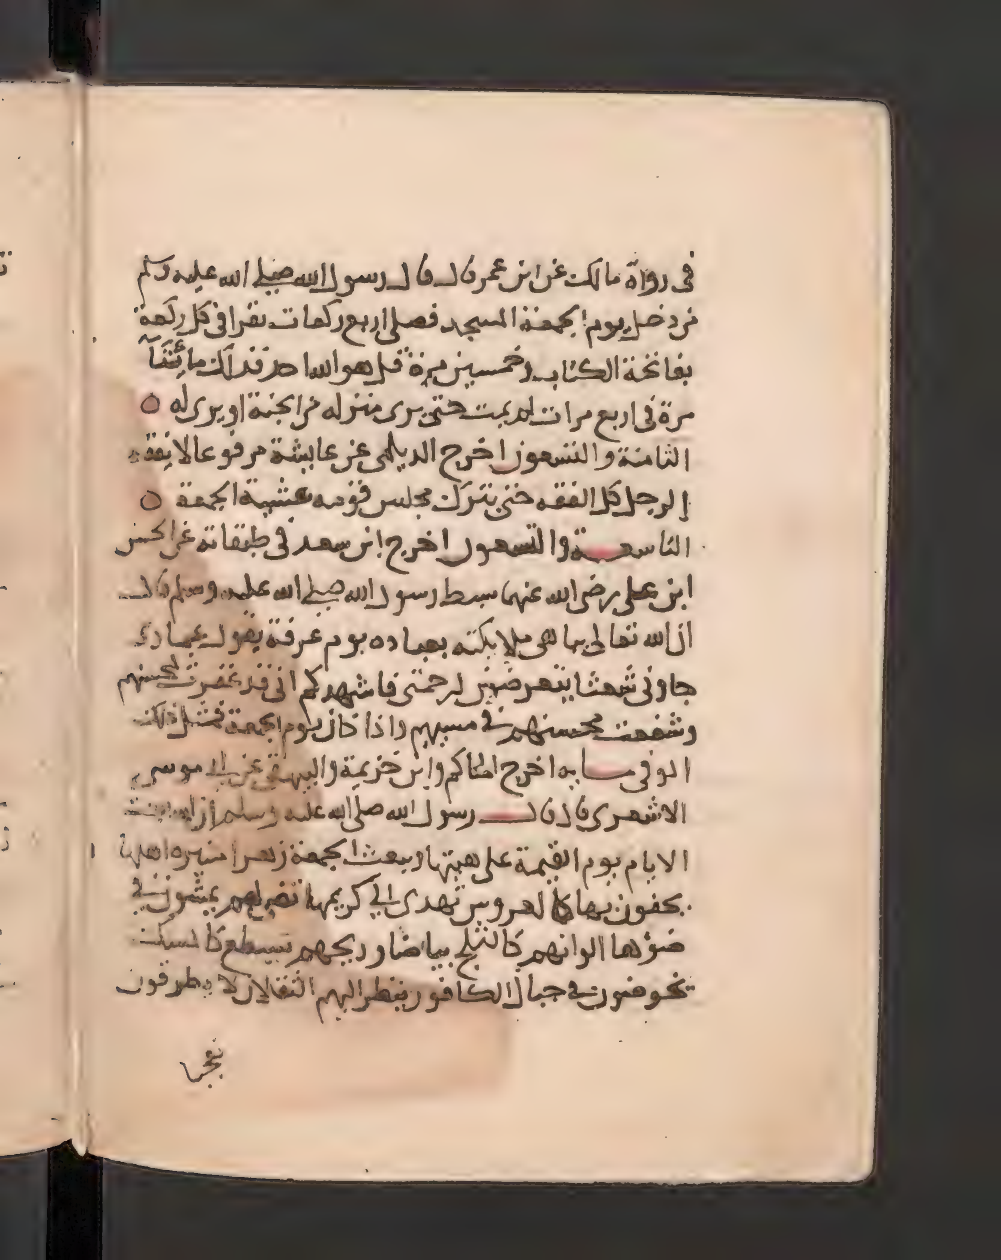 في رواة مالك عن ابن عمر قال قال رسول الله صلى الله عليه وسلم
من دخل يوم الجمعة المسجد فصلى اربع ركعات يقرا في كل ركعة
بفاتحة الكتاب وخمسين مرة قل هو الله احد فذلك مائتا
مرة في اربع مرات لم يمت حتى يرى منزله من الجنة او يرى له
الثامنة والتسعون اخرج الديلمي عن عايشة مرفوعا لا يفقه
الرجل كل الفقه حتى يترك مجلس قومه عشية الجمعة
التاسعة والتسعون اخرج ابن سعد في طبقاته عن الحسن
ابن علي رضي الله عنهما سبط رسول الله صلى الله عليه وسلم قال
ان الله تعالى يباهي ملايكته بعباده يوم عرفة يقول عبادي
جاوني شعثا يتعرضون لرحمتي فاشهدكم اني قد غفرت لمحسنهم
وشفعت محسنهم في مسيهم واذا كان يوم الجمعة فمثل ذلك
الموفي مايه اخرج الحاكم وابن خزيمة والبيهقي عن ابي موسى
الاشعري قال قال رسول الله صلى الله عليه وسلم ان الله يبعث
الايام يوم القيمة على هيئتها ويبعث الجمعة زهرا منيره اهلها
يحفون بها كالعروس تهدى الى كريمها تضي لهم يمشون في
ضوؤها الوانهم كالثلج بياضا وريحهم تسطع كالمسك
يخوضون في جبال الكافور ينظر اليهم الثقلان لا يطرقون